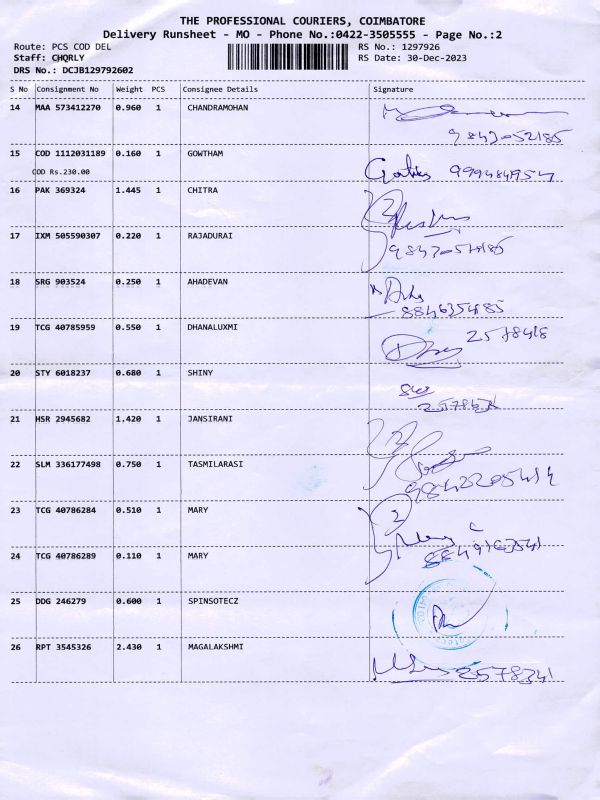 THE PROFESSIONAL COURIERS, COIMBATORE
Delivery Runsheet - MO - Phone No.:0422-3505555 - Page No.:2
Route: PCS COD DEL
RS No.: 1297926
Staff: CHQRLY
RS Date: 30-Dec-2023
DRS No.: DCJB129792602
S No Consignment No Weight PCS Consignee Details Signature
14 MAA 573412270 0.960 1 CHANDRAMOHAN
15 COD 1112031189 0.160 1 GOWTHAM
COD Rs.230.00
16 PAK 369324 1.445 1 CHITRA
17 IXM 505590307 0.220 1 RAJADURAI
18 SRG 903524 0.250 1 AHADEVAN
19 TCG 40785959 0.550 1 DHANALUXMI
20 STY 6018237 0.680 1 SHINY
21 HSR 2945682 1.420 1 JANSIRANI
22 SLM 336177498 0.750 1 TASMILARASI
23 TCG 40786284 0.510 1 MARY
24 TCG 40786289 0.110 1 MARY
25 DDG 246279 0.600 1 SPINSOTECZ
26 RPT 3545326 2.430 1 MAGALAKSHMI
2578341